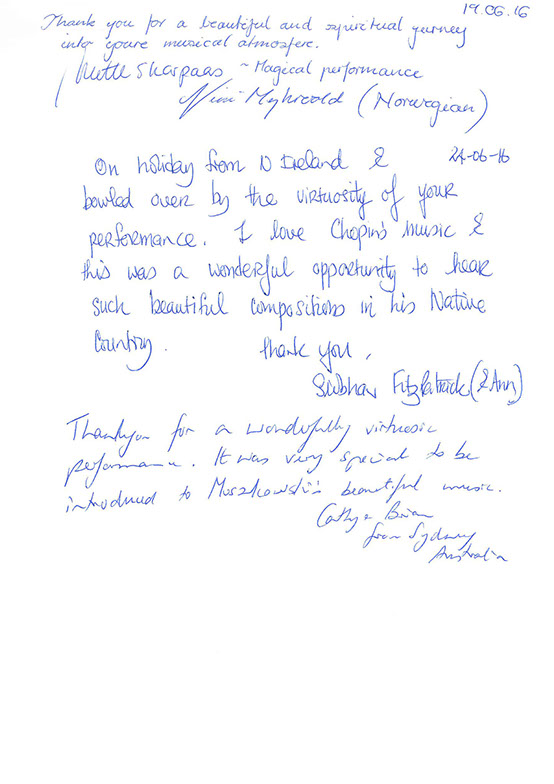 19.06.16
Thank you for a beautiful and spiritual yurney
into youre musical atmosfere.
Mette Skarpaas ~ Magical performance
Myhrvold (Norwegian)
24-06-16
On holiday from N Ireland &
bowled over by the virtuosity of your
performance. I love Chopin's music &
this was a wonderful opportunity to hear
such beautiful compositions in his Native
Country.
Thank you,
Siobhan Fitzpatrick (& Ann)
Thankyou for a wonderfully virtuosic
performance. It was very special to be
introduced to Moszkowski's beautiful music.
Cathy & Brian
from Sydney
Australia